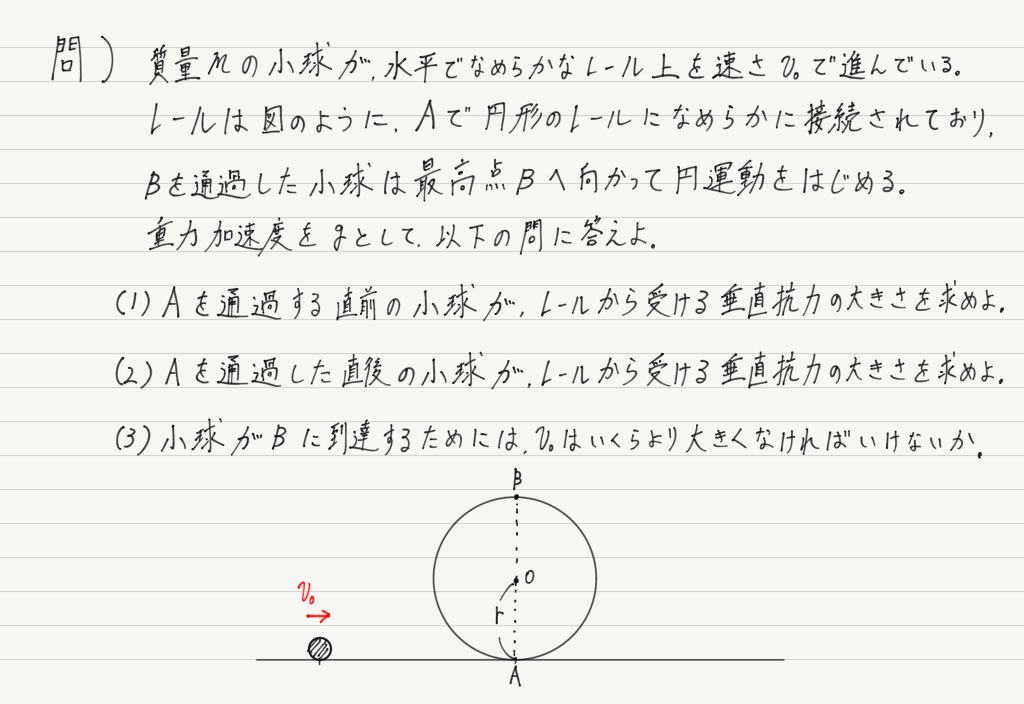 問) 質量mの小球が,水平でなめらかなレール上を速さv₀で進んでいる。
レールは図のように,Aで円形のレールになめらかに接続されており,
Bを通過した小球は最高点Bへ向かって円運動をはじめる。
重力加速度をgとして,以下の問に答えよ。
(1) Aを通過する直前の小球が,レールから受ける垂直抗力の大きさを求めよ。
(2) Aを通過した直後の小球が,レールから受ける垂直抗力の大きさを求めよ。
(3) 小球がBに到達するためには,v₀はいくらより大きくなければいけないか。
B
O
v₀
r
A